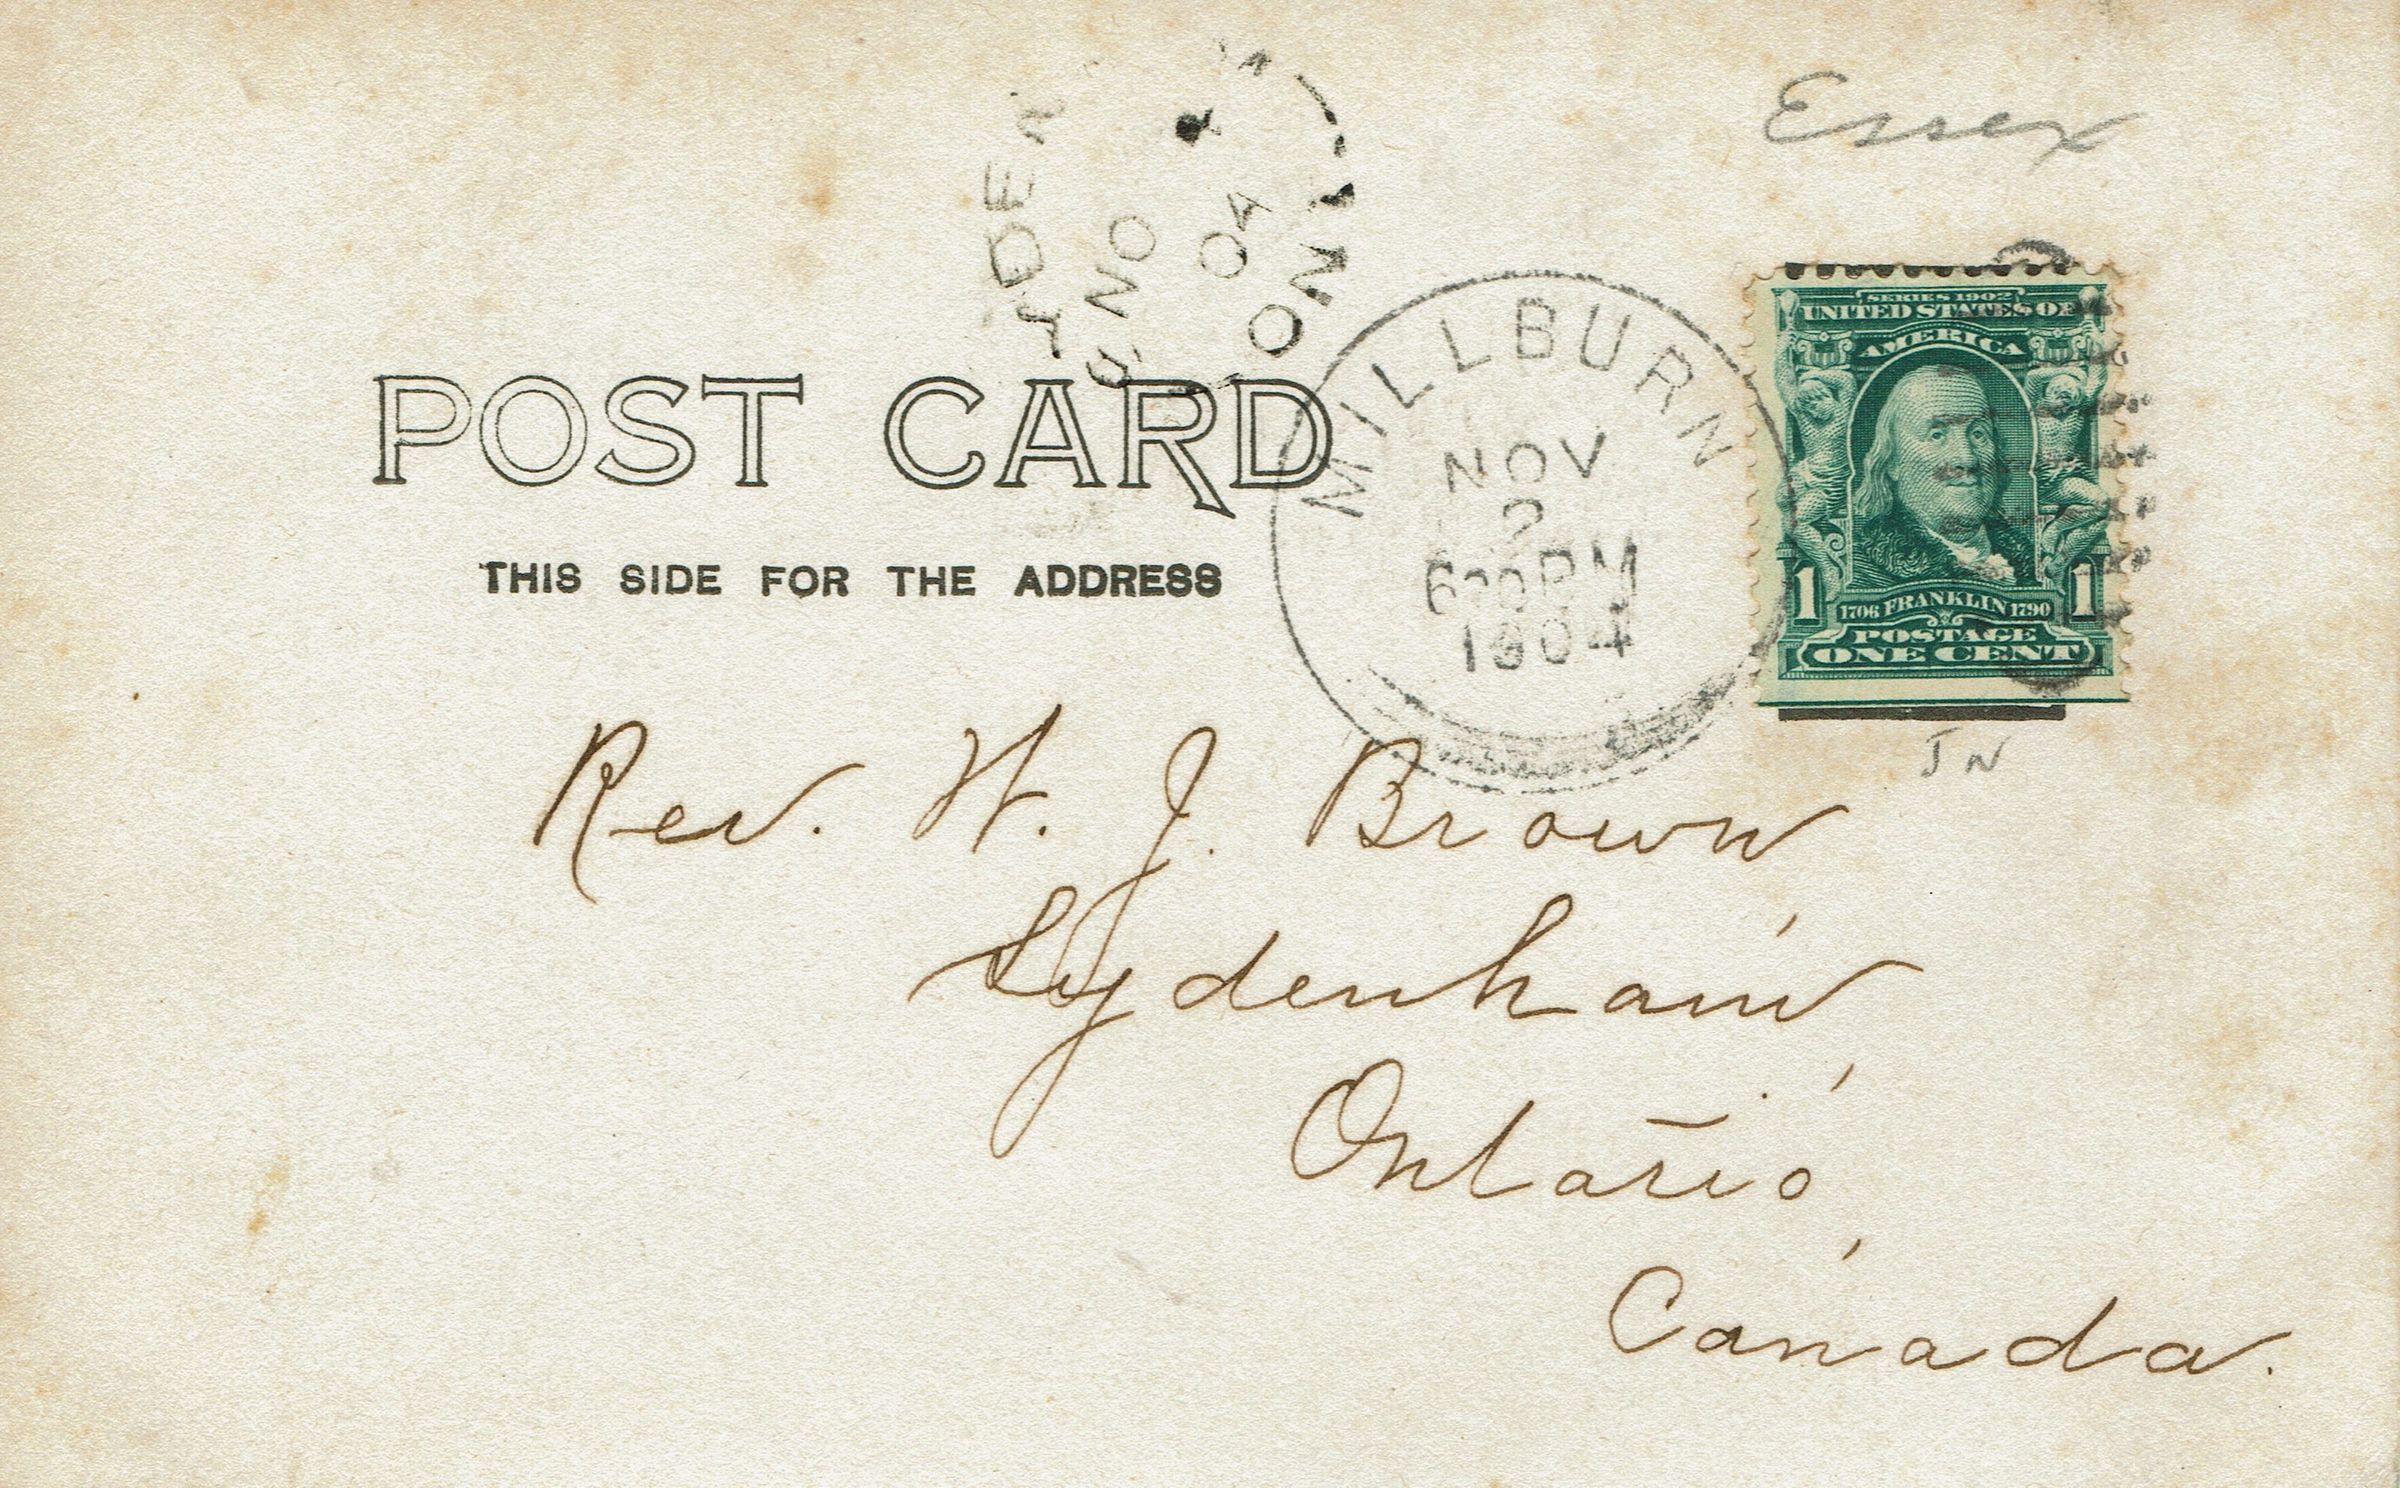 Essex
POST CARD
THIS SIDE FOR THE ADDRESS
YDEN
NO
04
ONT
MILLBURN
NOV
2
6 PM
1904
SERIES 1902
UNITED STATES OF
AMERICA
1 1
1706 FRANKLIN 1790
POSTAGE
ONE CENT
Rev. W. J. Brown,
Sydenham,
Ontario,
Canada.